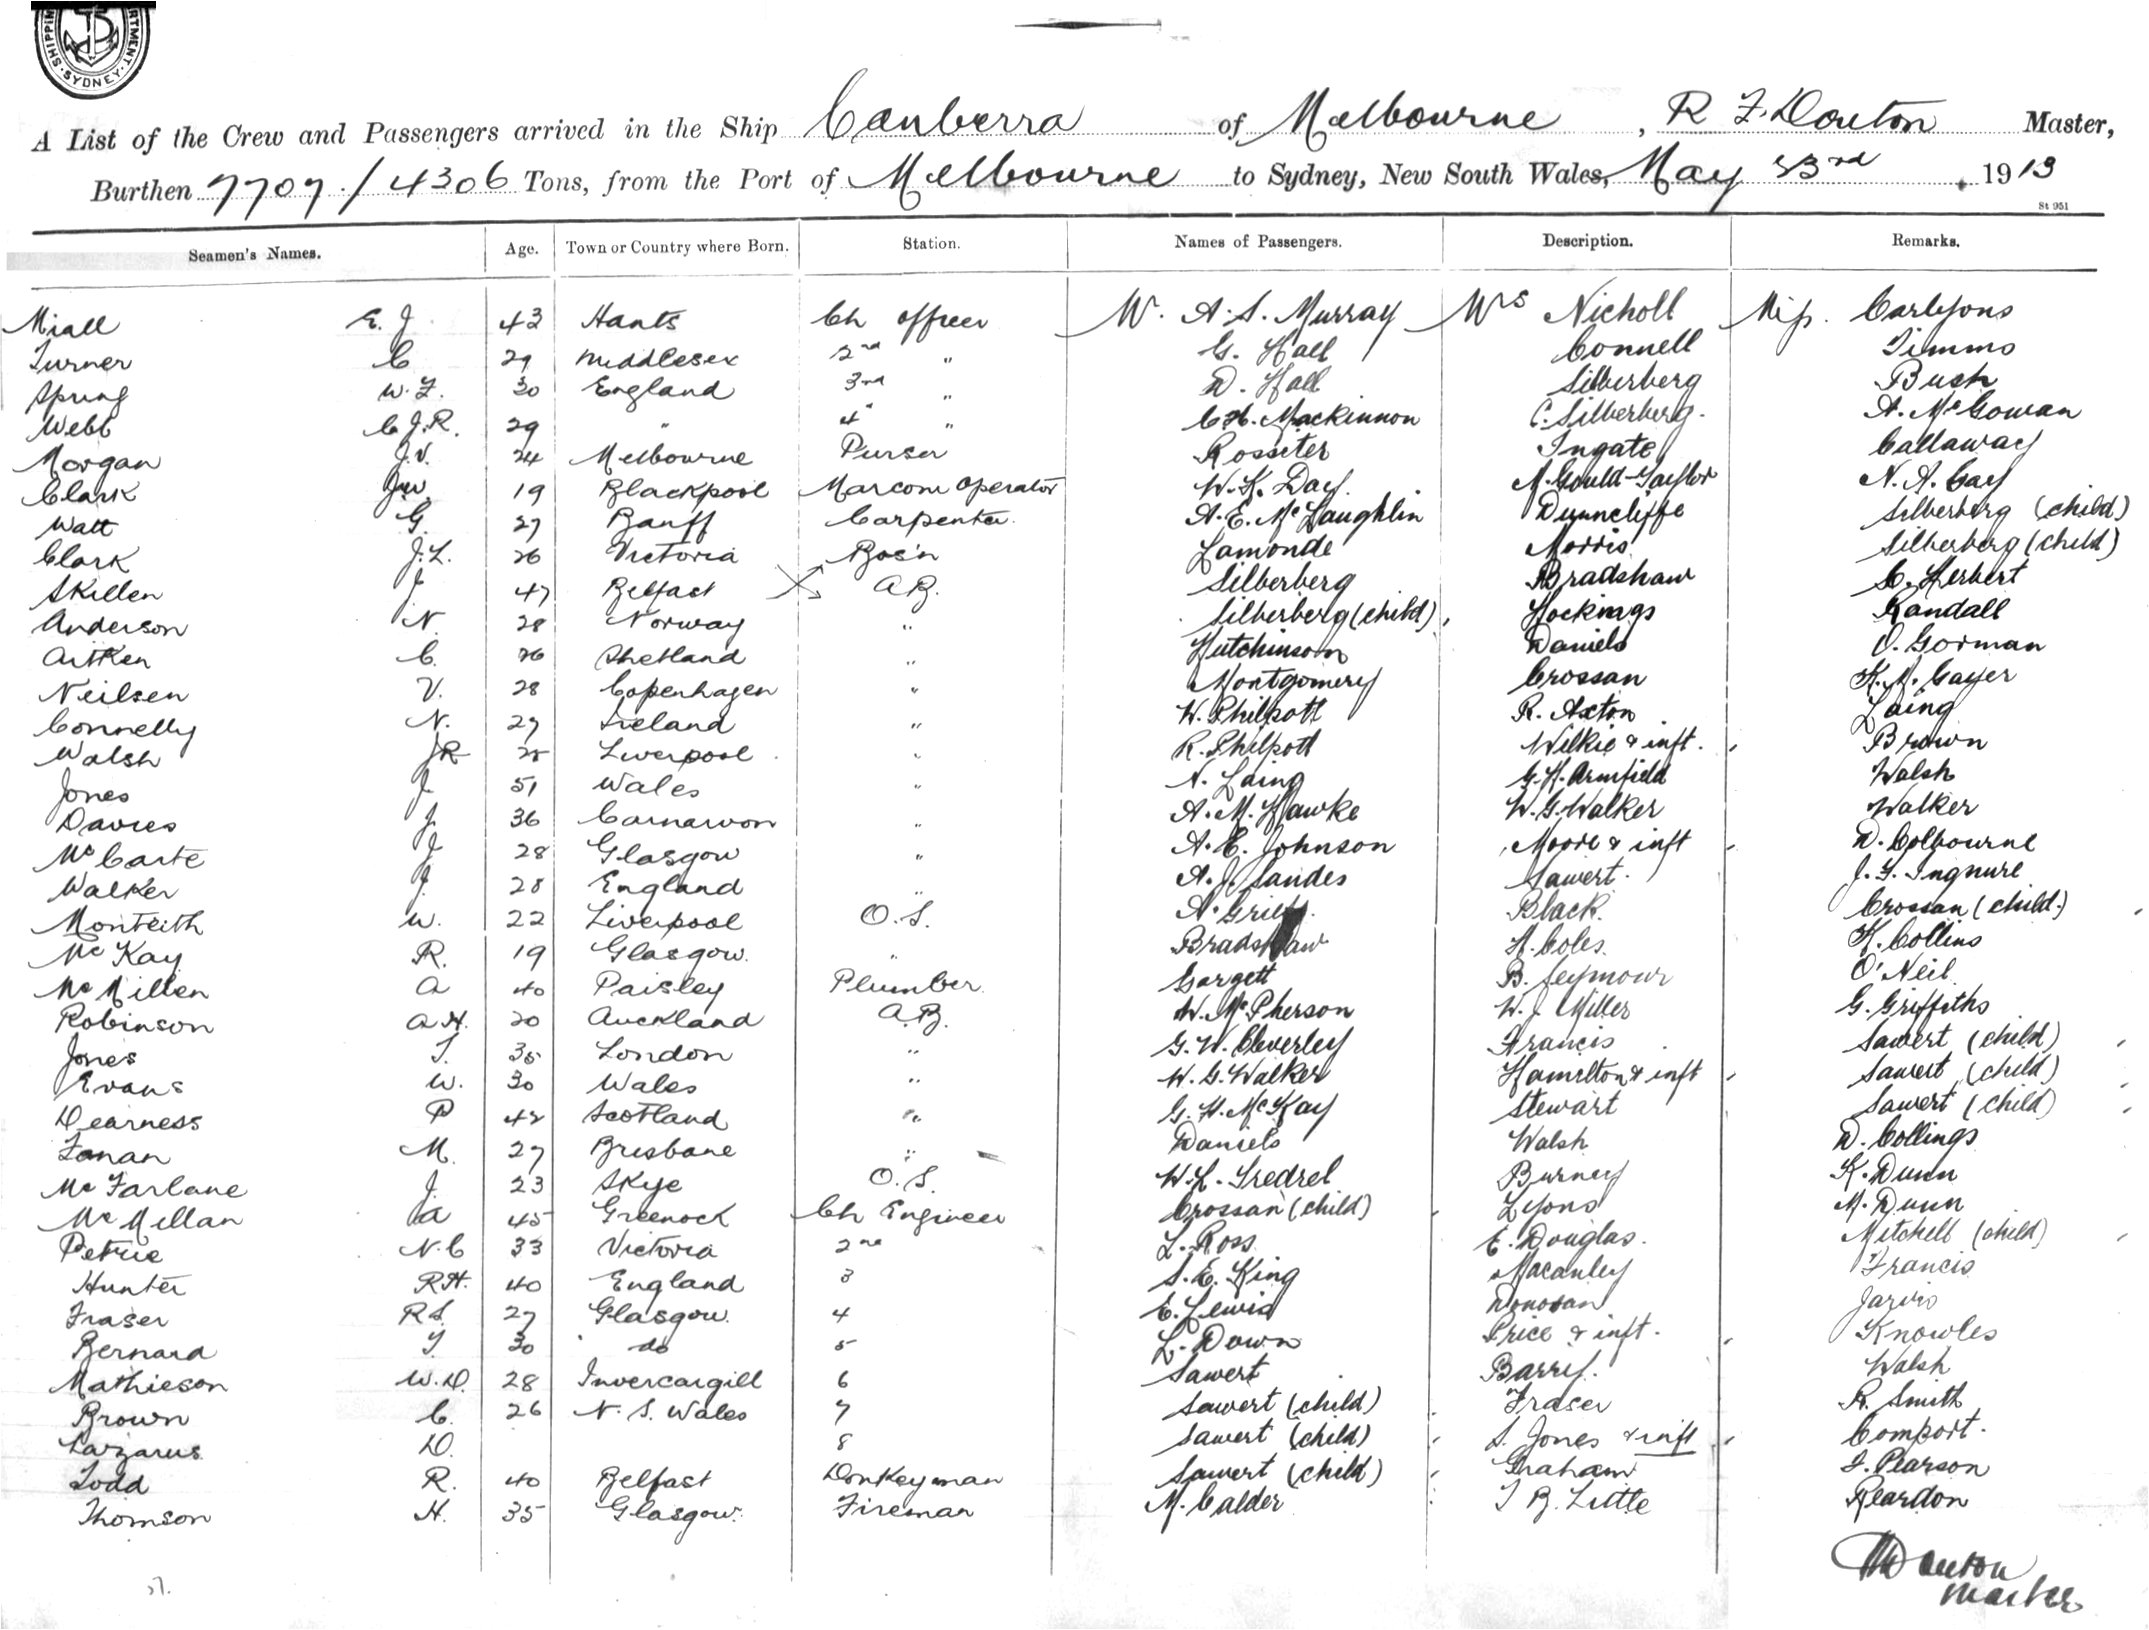 SHIPPING DEPARTMENT. SYDNEY.
A List of the Crew and Passengers arrived in the Ship Canberra of Melbourne, R F. Douton Master,
Burthen 7707/4306 Tons, from the Port of Melbourne to Sydney, New South Wales, May 23rd 1913
St 951
Seamen's Names. Age. Town or Country where Born. Station. Names of Passengers. Description. Remarks.
Miall E. J. 43 Hants Ch officer Mr. A. S. Murray Mrs Nicholl Miss. Carlyons
Turner C 29 Middlesex 2nd " G. Hall Connell Timms
Spring W. F. 30 England 3rd " D. Hall Silberberg Bush
Webb C J. R. 29 " 4" " C H. Mackinnon C. Silberberg. A. McGowan
Morgan J. V. 24 Melbourne Purser Rossiter Ingate Callaway
Clark J W. 19 Blackpool Marconi Operator W. K. Day. M. Gould-Taylor N. A. Cay
Watt G. 27 Banff Carpenter. A. E. McLaughlin Dunncliffe Silberberg (child)
Clark J. L. 26 Victoria Bos'n Lamonde Morris Silberberg (child)
Skillen J 47 Belfast A B. Silberberg Bradshaw C. Herbert
Anderson N. 28 Norway " Silberberg (child) Hockings Randall
Aitken C. 26 Shetland " Hutchinson Daniels O. Gorman
Neilsen V. 28 Copenhagen " Montgomery Crossan K. M. Gayer
Connelly N. 27 Ireland " W. Philpott R. Axton Laing
Walsh J R 25 Liverpool " R. Philpott Wilkie & inft. Brown
Jones J. 51 Wales " A. Laing G. H. Armfield Walsh
Davies J. 36 Carnarvon " A. M. Hawke W. G. Walker Walker
McCarte J 28 Glasgow " A. E. Johnson Moore & inft D. Colbourne
Walker J. 28 England " A. J. Sandes Sawert. J. G. Ingmire
Monteith W. 22 Liverpool O. S. A. Black. Crossan (child)
McKay R. 19 Glasgow. " Bradshaw H. Coles. K. Collins
McMillen A 40 Paisley Plumber Gargett B. Seymour O'Neil
Robinson A H. 20 Auckland A. B. W. McPherson W. J. Miller G. Griffiths
Jones T. 35 London " G. W. Cleverley Francis Sawert (child)
Evans W. 30 Wales " W. G. Walker Hamilton & inft Sawert (child)
Dearness P 42 Scotland " G. H. McKay Stewart Sawert (child)
Fanan M. 27 Brisbane " Daniels Walsh D. Collings
McFarlane J. 23 Skye O. S. W. L. Burney K. Dunn
McMillan A 45 Greenock Ch Engineer Crossan (child) Lyons M. Dunn
Petrie N. C 33 Victoria 2nd L. Ross E. Douglas. Mitchell (child)
Hunter R H. 40 England 3 S. E. King Macauley Francis
Fraser R S. 27 Glasgow. 4 E. Lewis Donovan Jarvis
Bernard T 30 " do 5 L. Down Price & inft. Knowles
Mathieson W. D. 28 Invercargill 6 Sawert Barrif. Walsh
Brown C. 26 N. S. Wales 7 Sawert (child) Fraser R. Smith
Lazarus D. 8 Sawert (child) S. Jones & inft Comport.
Todd R. 40 Belfast Donkeyman Sawert (child) Graham F. Pearson
Thomson H. 35 Glasgow. Fireman M. Calder T B. Little Reardon
Douton
Master